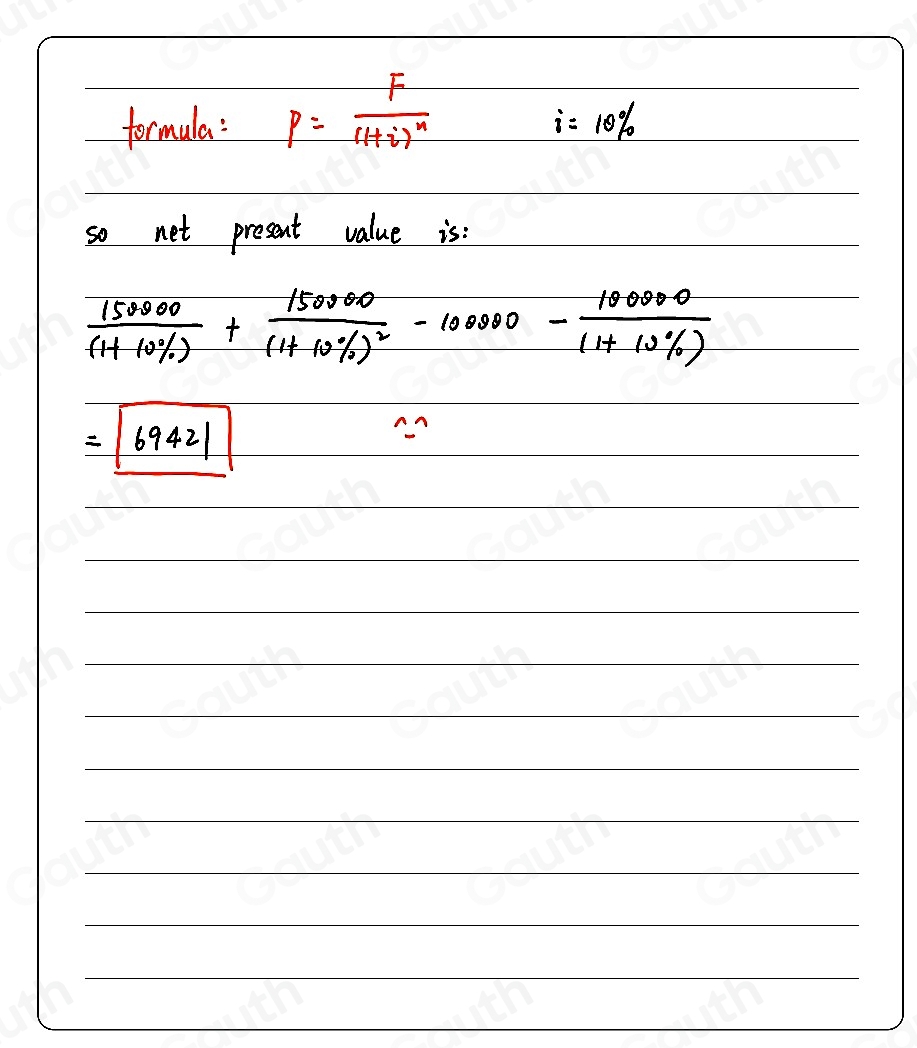 formula: P = F/(1+i)^n i = 10%
so net present value is:
150000/(1+10%) + 150000/(1+10%)^2 - 100000 - 100000/(1+10%)
= 69421